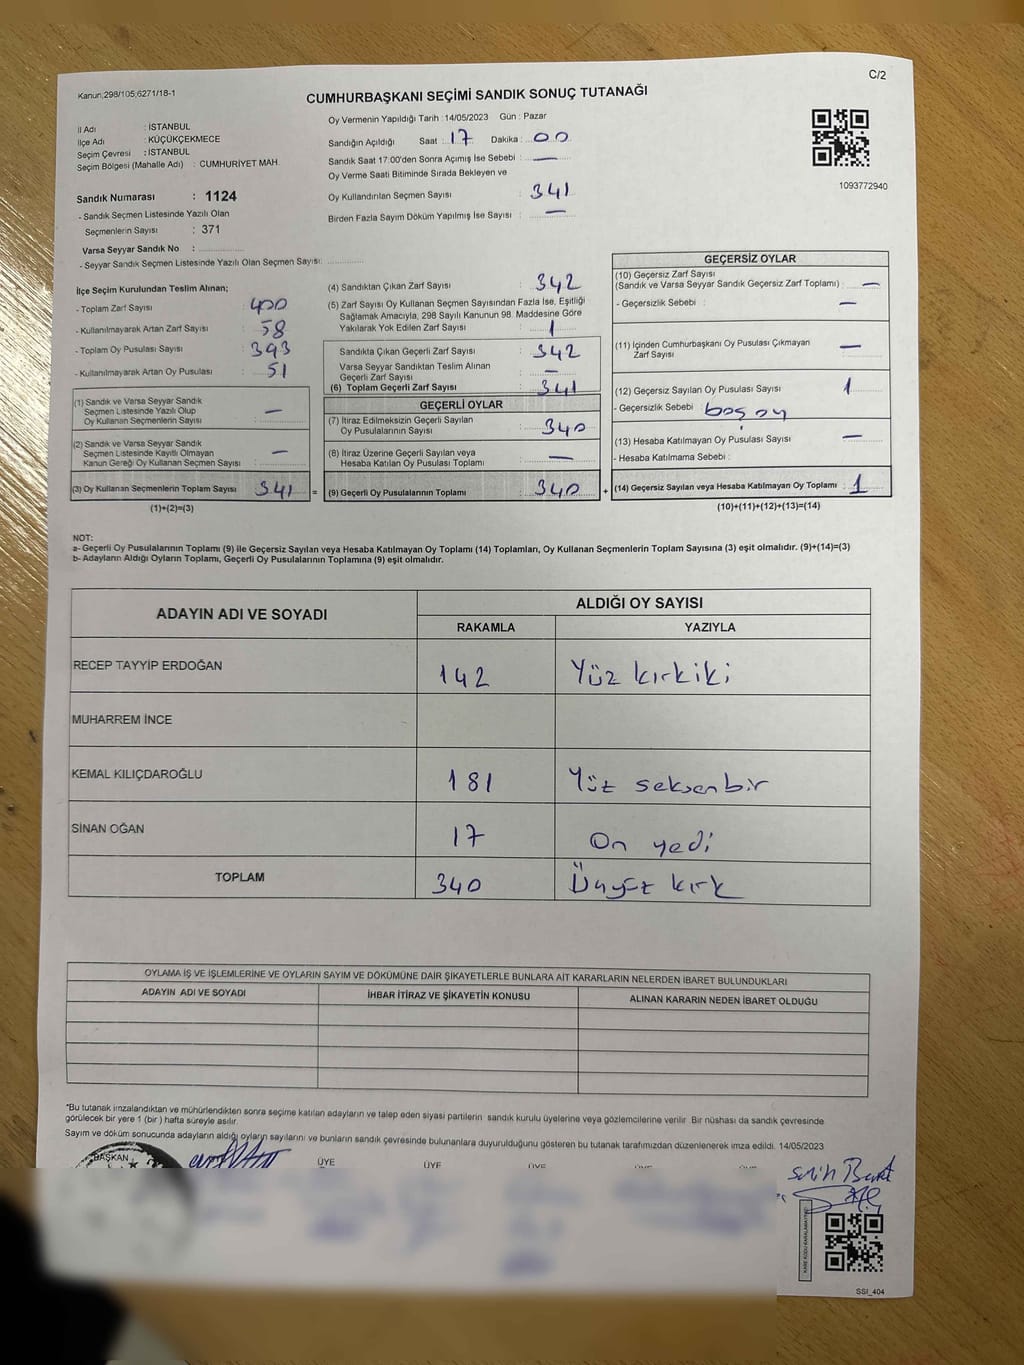 C/2
Kanun;298/105;6271/18-1
CUMHURBAŞKANI SEÇİMİ SANDIK SONUÇ TUTANAĞI
İl Adı : İSTANBUL
İlçe Adı : KÜÇÜKÇEKMECE
Seçim Çevresi : İSTANBUL
Seçim Bölgesi (Mahalle Adı) : CUMHURİYET MAH.
Sandık Numarası : 1124
- Sandık Seçmen Listesinde Yazılı Olan
Seçmenlerin Sayısı : 371
Varsa Seyyar Sandık No :
- Seyyar Sandık Seçmen Listesinde Yazılı Olan Seçmen Sayısı:
Oy Vermenin Yapıldığı Tarih : 14/05/2023 Gün : Pazar
Sandığın Açıldığı Saat : 17 Dakika : 00
Sandık Saat 17:00'den Sonra Açımış İse Sebebi : —
Oy Verme Saati Bitiminde Sırada Bekleyen ve
Oy Kullandırılan Seçmen Sayısı : 341
Birden Fazla Sayım Döküm Yapılmış İse Sayısı : —
1093772940
İlçe Seçim Kurulundan Teslim Alınan;
- Toplam Zarf Sayısı : 400
- Kullanılmayarak Artan Zarf Sayısı : 58
- Toplam Oy Pusulası Sayısı : 393
- Kullanılmayarak Artan Oy Pusulası : 51
(1) Sandık ve Varsa Seyyar Sandık
Seçmen Listesinde Yazılı Olup
Oy Kullanan Seçmenlerin Sayısı : —
(2) Sandık ve Varsa Seyyar Sandık
Seçmen Listesinde Kayıtlı Olmayan
Kanun Gereği Oy Kullanan Seçmen Sayısı : —
(3) Oy Kullanan Seçmenlerin Toplam Sayısı : 341 =
(1)+(2)=(3)
(4) Sandıktan Çıkan Zarf Sayısı : 342
(5) Zarf Sayısı Oy Kullanan Seçmen Sayısından Fazla İse, Eşitliği
Sağlamak Amacıyla, 298 Sayılı Kanunun 98. Maddesine Göre
Yakılarak Yok Edilen Zarf Sayısı : 1
Sandıkta Çıkan Geçerli Zarf Sayısı : 342
Varsa Seyyar Sandıktan Teslim Alınan
Geçerli Zarf Sayısı : —
(6) Toplam Geçerli Zarf Sayısı : 341
GEÇERLİ OYLAR
(7) İtiraz Edilmeksizin Geçerli Sayılan
Oy Pusulalarının Sayısı : 340
(8) İtiraz Üzerine Geçerli Sayılan veya
Hesaba Katılan Oy Pusulası Toplamı : —
(9) Geçerli Oy Pusulalarının Toplamı : 340 +
GEÇERSİZ OYLAR
(10) Geçersiz Zarf Sayısı
(Sandık ve Varsa Seyyar Sandık Geçersiz Zarf Toplamı) : —
- Geçersizlik Sebebi : —
(11) İçinden Cumhurbaşkanı Oy Pusulası Çıkmayan
Zarf Sayısı : —
(12) Geçersiz Sayılan Oy Pusulası Sayısı : 1
- Geçersizlik Sebebi : boş oy
(13) Hesaba Katılmayan Oy Pusulası Sayısı : —
- Hesaba Katılmama Sebebi :
(14) Geçersiz Sayılan veya Hesaba Katılmayan Oy Toplamı : 1
(10)+(11)+(12)+(13)=(14)
NOT:
a- Geçerli Oy Pusulalarının Toplamı (9) ile Geçersiz Sayılan veya Hesaba Katılmayan Oy Toplamı (14) Toplamları, Oy Kullanan Seçmenlerin Toplam Sayısına (3) eşit olmalıdır. (9)+(14)=(3)
b- Adayların Aldığı Oyların Toplamı, Geçerli Oy Pusulalarının Toplamına (9) eşit olmalıdır.
ADAYIN ADI VE SOYADI ALDIĞI OY SAYISI
RAKAMLA YAZIYLA
RECEP TAYYİP ERDOĞAN 142 Yüz kırkiki
MUHARREM İNCE
KEMAL KILIÇDAROĞLU 181 Yüz seksenbir
SİNAN OĞAN 17 On yedi
TOPLAM 340 Üçyüz kırk
OYLAMA İŞ VE İŞLEMLERİNE VE OYLARIN SAYIM VE DÖKÜMÜNE DAİR ŞİKAYETLERLE BUNLARA AİT KARARLARIN NELERDEN İBARET BULUNDUKLARI
ADAYIN ADI VE SOYADI İHBAR İTİRAZ VE ŞİKAYETİN KONUSU ALINAN KARARIN NEDEN İBARET OLDUĞU
*Bu tutanak imzalandıktan ve mühürlendikten sonra seçime katılan adayların ve talep eden siyasi partilerin sandık kurulu üyelerine veya gözlemcilerine verilir. Bir nüshası da sandık çevresinde
görülecek bir yere 1 (bir) hafta süreyle asılır.
Sayım ve döküm sonucunda adayların aldığı oyların sayılarını ve bunların sandık çevresinde bulunanlara duyurulduğunu gösteren bu tutanak tarafımızdan düzenlenerek imza edildi. 14/05/2023
BAŞKAN ÜYE ÜYE ÜYE ÜYE ÜYE
SSI_404